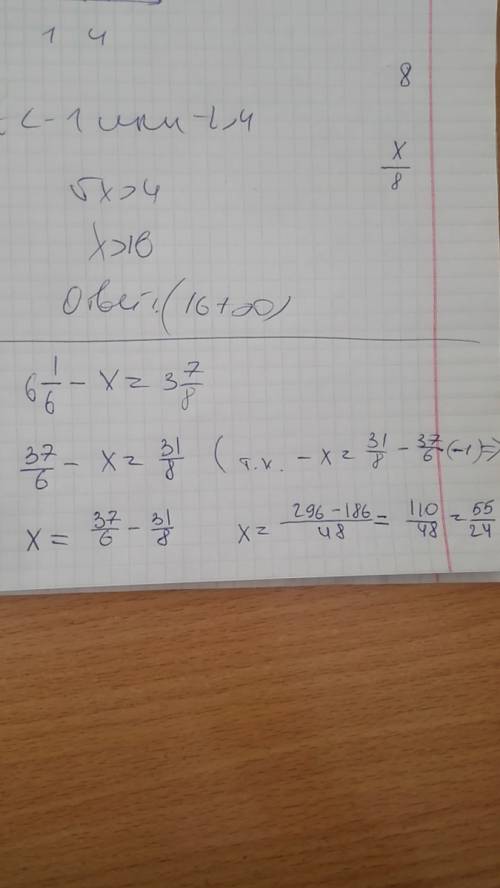 1 4
8
< -1 или -1 > 4
x/8
√x > 4
x > 16
Ответ: (16 +∞)
6 1/6 - x = 3 7/8
37/6 - x = 31/8 ( т.к. - x = 31/8 - 37/6 (-1) ⇒
x = 37/6 - 31/8 x = (296 - 186)/48 = 110/48 = 55/24